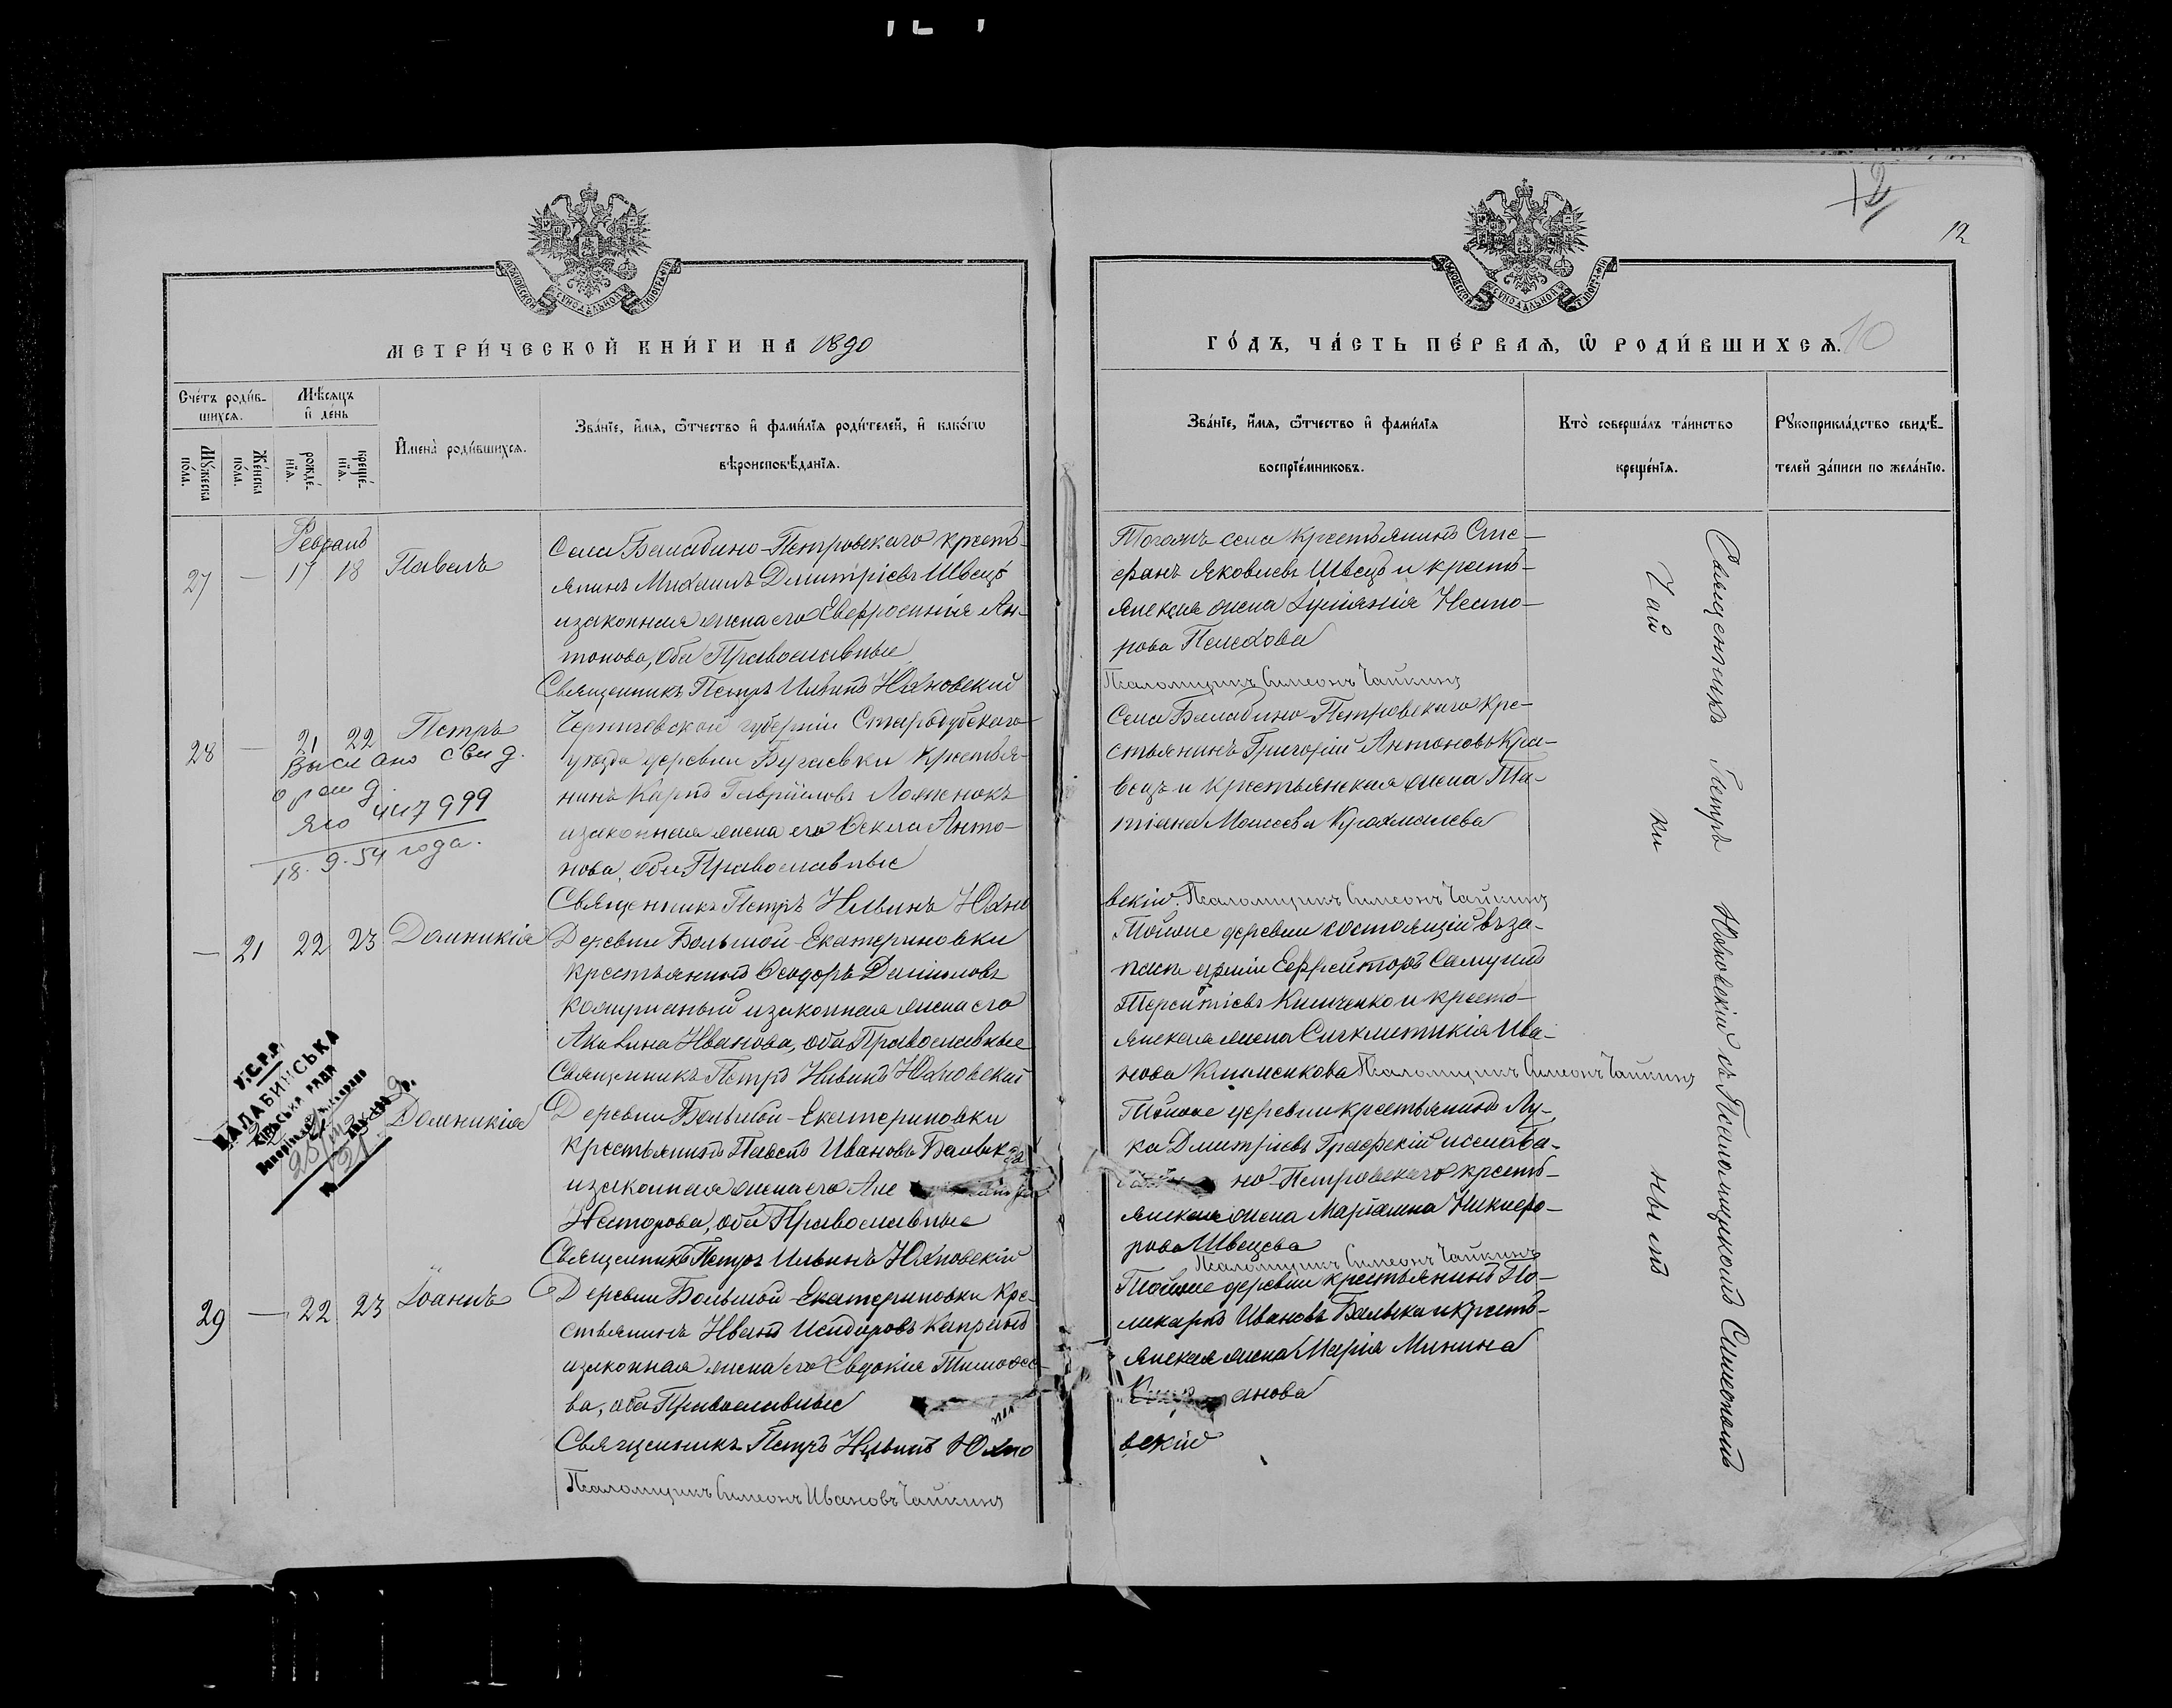 12
МОСКОВСКОЙ СѴНОДАЛЬНОЙ ТИПОГРАФІИ
МОСКОВСКОЙ СѴНОДАЛЬНОЙ ТИПОГРАФІИ
МЕТРИ́ЧЕСКОЙ КНИ́ГИ НА 1890
ГО́ДЪ, ЧА́СТЬ ПЕ́РВАѦ, Ѡ РОДИ́ВШИХСѦ. 10
Сче́тъ роди́в-
шихсѧ.
Мꙋ́жеска
по́ла.
Же́нска
по́ла.
Мѣ́сѧцъ
и҆ де́нь
рожде́-
нїѧ.
креще́-
нїѧ.
И҆мена̀ роди́вшихсѧ.
Зва́нїе, и҆́мѧ, ѻ҆́тчество и҆ фами́лїѧ роди́телей, и҆ како́гѡ
вѣроисповѣ́данїѧ.
Зва́нїе, и҆́мѧ, ѻ҆́тчество и҆ фами́лїѧ
воспрїе́мниковъ.
Кто̀ соверша́лъ та́инство
креще́нїѧ.
Рꙋкоприкла́дство свидѣ́-
телей за́писи по жела́нїю.
Февраль
27 — 17 18 Павелъ
Села Балабино-Петровскаго кресть-
янинъ Михаилъ Димитріевъ Швецъ
и законная жена его Евфросинія Ан-
тонова, оба Православные
Священникъ Петръ Ильинъ Юхновскій
Тогожъ села крестьянинъ Сте-
фанъ Яковлевъ Швецъ и кресть-
янская жена Іуліанія Несто-
рова Пелехова
Псаломщикъ Симеонъ Чайкинъ
28 — 21 22 Петръ
Выслано свид.
ЯЮ 447999
18.9.54 года.
Черниговской губерніи Стародубскаго
уѣзда деревни Бугаевки крестья-
нинъ Карпъ Гавріиловъ
и законная жена его Ѳекла Анто-
нова, оба Православные
Священникъ Петръ Ильинъ Юхно
Села Балабино-Петровскаго кре-
стьянинъ Григорій Антоновъ Кра-
вецъ и крестьянская жена Та-
тіана Моисеева Крахмалева
вскій. Псаломщикъ Симеонъ Чайкинъ
— 21 22 23 Домникія
Деревни Большой-Екатериновки
крестьянинъ Ѳеодоръ Даніиловъ
и законная жена его
Акилина Иванова, оба Православные
Священникъ Петръ Ильинъ Юхновскій
Тойже деревни состоящій въ за-
пасѣ арміи Ефрейторъ Самуилъ
Терентіевъ Климченко и кресть-
янская жена Синклитикія Ива-
нова Клименкова Псаломщикъ Симеонъ Чайкинъ
У.С.Р.Р.
БАЛАБИНСЬКА
Домникія
Деревни Большой-Екатериновки
крестьянинъ Павелъ Ивановъ
и законная жена его
Несторова, оба Православные
Священникъ Петръ Ильинъ Юхновскій
Тойже деревни крестьянинъ Лу-
ка Димитріевъ Графскій и села Ба-
но-Петровскаго кресть-
янская жена Маріанна Никифо-
рова Швецова
Псаломщикъ Симеонъ Чайкинъ
29 — 22 23 Іоаннъ
Деревни Большой-Екатериновки кре-
стьянинъ Иванъ Исидоровъ
и законная жена его Евдокія Тимоѳее-
ва, оба Православные
Священникъ Петръ Ильинъ Юхно
Псаломщикъ Симеонъ Ивановъ Чайкинъ
Тойже деревни крестьянинъ По-
ликарпъ Ивановъ и кресть-
янская жена Марія Минина
анова
вскій
Священникъ Петръ Юхновскій съ Псаломщикомъ Симеономъ
Чай ки нымъ